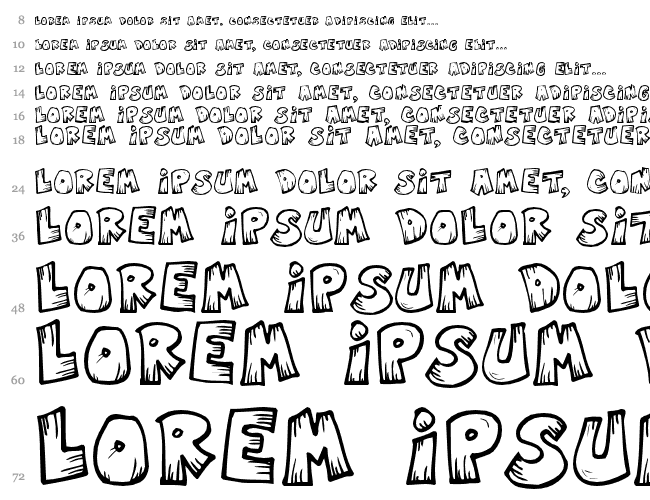 8 LOREM iPSUM DOLOR SiT AMET, CONSECTETUER ADiPiSCiNG ELiT...
10 LOREM iPSUM DOLOR SiT AMET, CONSECTETUER ADiPiSCiNG ELiT...
12 LOREM iPSUM DOLOR SiT AMET, CONSECTETUER ADiPiSCiNG ELiT...
14 LOREM iPSUM DOLOR SiT AMET, CONSECTETUER ADiPiSCiNG
16 LOREM iPSUM DOLOR SiT AMET, CONSECTETUER ADiPi
18 LOREM iPSUM DOLOR SiT AMET, CONSECTETUER
24 LOREM iPSUM DOLOR SiT AMET, CON
36 LOREM iPSUM DOLOR SiT
48 LOREM iPSUM DOL
60 LOREM iPSUM
72 LOREM iPSU